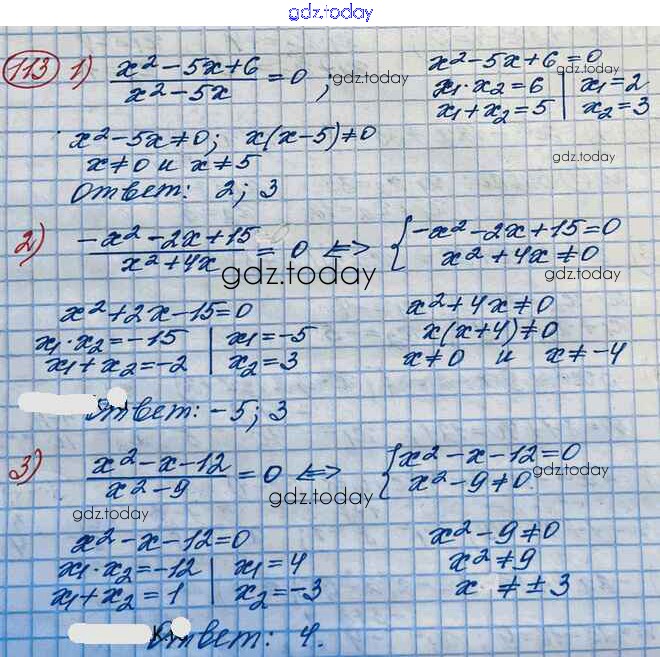 gdz.today
113 1) (x² - 5x + 6)/(x² - 5x) = 0 ; gdz.today
x² - 5x + 6 = 0 gdz.today
x₁ · x₂ = 6 | x₁ = 2
x₁ + x₂ = 5 | x₂ = 3
x² - 5x ≠ 0; x(x - 5) ≠ 0
x ≠ 0 и x ≠ 5 gdz.today
Ответ: 2; 3
2) (-x² - 2x + 15)/(x² + 4x) = 0 <=> { -x² - 2x + 15 = 0
x² + 4x ≠ 0
gdz.today gdz.today
x² + 2x - 15 = 0
x₁ · x₂ = -15 | x₁ = -5
x₁ + x₂ = -2 | x₂ = 3
x² + 4x ≠ 0
x(x + 4) ≠ 0
x ≠ 0 и x ≠ -4
Ответ: -5; 3
3) (x² - x - 12)/(x² - 9) = 0 <=> { x² - x - 12 = 0
x² - 9 ≠ 0 gdz.today
gdz.today gdz.today
x² - x - 12 = 0
x₁ · x₂ = -12 | x₁ = 4
x₁ + x₂ = 1 | x₂ = -3
x² - 9 ≠ 0
x² ≠ 9
x ≠ ± 3
Ответ: 4.